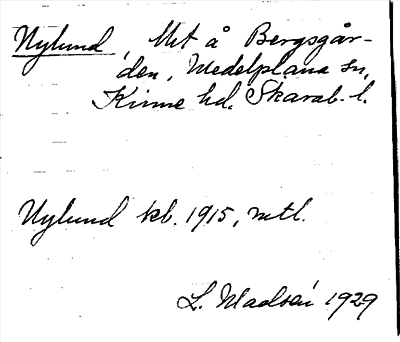 Nylund, lht å Bergsgår-
den, Medelplana sn,
Kinne hd. Skarab. l.
Nylund kb. 1915, mtl.
L. Madsén 1929